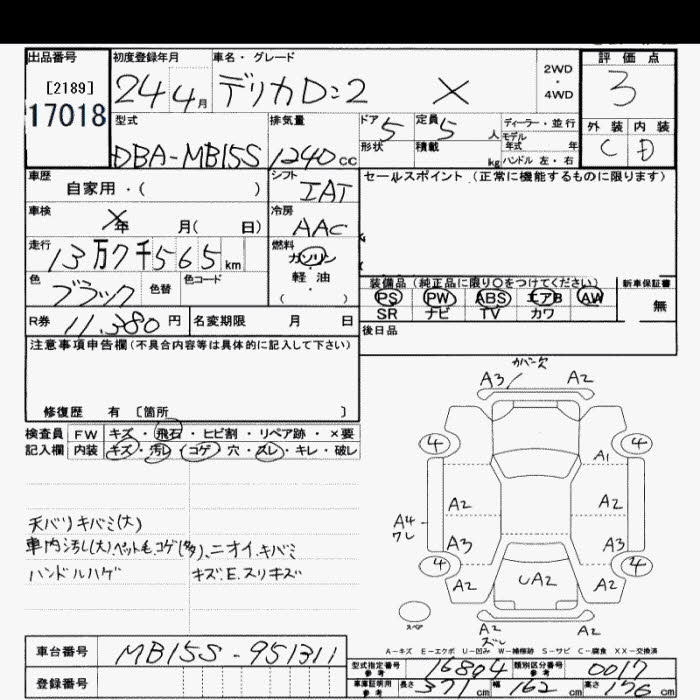 出品番号 初度登録年月 車名・グレード 2WD・4WD 評価点
[2189] 24年4月 デリカD:2 X 3
17018
型式 排気量 ドア 5 定員 5人 ディーラー・並行 外装 内装
モデル年式 年
DBA-MB15S 1240cc 形状 積載 kg ハンドル 左・右 C D
車歴 シフト セールスポイント(正常に機能するものに限ります)
自家用・( ) IAT
車検 冷房
X年 月( 日) AAC
走行 燃料
13万7千565km ガソリン・軽油
( )
色 色替 色コード 装備品(純正品に限り○をつけてください) 新車保証書
ブラック PS PW ABS エアB AW 無
SR ナビ TV カワ
R券 11,380円 名変期限 月 日 後日品
注意事項申告欄(不具合内容等は具体的に記入して下さい)
修復歴 有 〔箇所 〕
検査員 FW キズ・飛石・ヒビ割・リペア跡・×要
記入欄 内装 キズ・汚レ・コゲ・穴・スレ・キレ・破レ
カバー欠
A3 A2
4 4
A1
A2 A2
A4
ワレ
A3 A3
4 4
A2 UA2 A2
スペア A2 A2
ズレ
天バリキバミ(大)
車内汚し(大)ペット毛、コゲ(多)、ニオイ、キバミ
ハンドルハゲ キズ.E.スリキズ
A-キズ E-エクボ U-凹み W-補修跡 S-サビ C-腐食 XX-交換済
車台番号 MB15S-951311
型式指定番号 参考 16804 類別区分番号 参考 0017
登録番号
車庫証明用 参考 長さ 371cm 幅 162cm 高さ 176cm